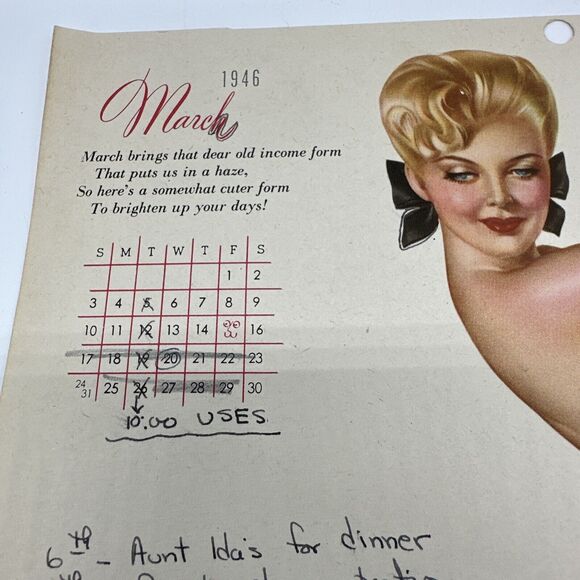 1946
March
March brings that dear old income form
That puts us in a haze,
So here's a somewhat cuter form
To brighten up your days!
S M T W T F S
1 2
3 4 5 6 7 8 9
10 11 12 13 14 16
17 18 19 20 21 22 23
24 31 25 26 27 28 29 30
10:00 USES
6th - Aunt Ida's for dinner